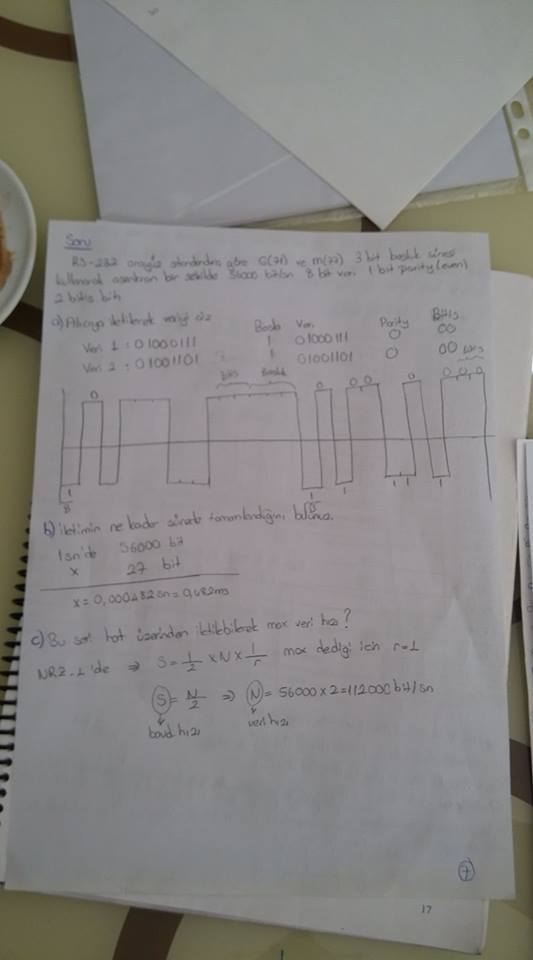 Soru
RS-232 arayüz standardına göre G(71) ve m(77) 3 bit boşluk süresi
kullanarak asenkron bir şekilde 56000 bit/sn 8 bit veri 1 bit parity (even)
2 bitiş biti
a) Alıcıya iletilecek veriyi çiz
Başla Veri Parity Bitiş
Veri 1 : 01000111 1 01000111 0 00
Veri 2 : 01001101 1 01001101 0 00
Bitiş
Bitiş Boşluk
0 0 0 0 0 0 0 0
1 1 1 1 1 1
B B
b) iletimin ne kadar sürede tamamlandığını bulunuz.
1sn'de 56000 bit
x 27 bit
x = 0,000482sn = 0,482ms
c) Bu seri hat üzerinden iletilebilecek max veri hızı?
NRZ-L'de ⇒ S = 1/2 x N x 1/r max dediği için r=1
S = N/2 ⇒ N = 56000 x 2 = 112000 bit/sn
baud hızı veri hızı
7
17